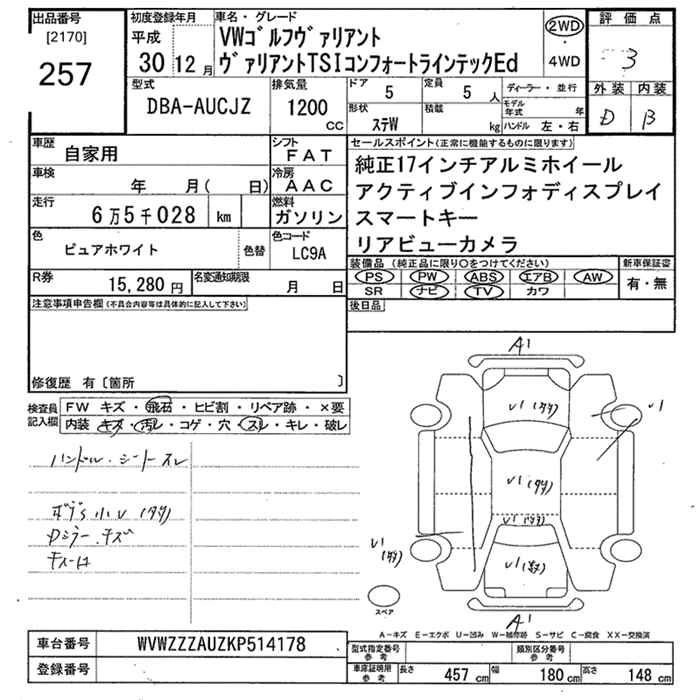 出品番号
[2170]
257
初度登録年月
平成
30 12 月
車名・グレード
VWゴルフヴァリアント
ヴァリアントTSIコンフォートラインテックEd
2WD
・
4WD
評価点
3
外装 内装
D B
型式
DBA-AUCJZ
排気量
1200
CC
ドア
5
定員
5 人
形状
ステW
積載
kg
ディーラー・並行
モデル
年式 年
ハンドル 左・右
車歴
自家用
シフト
FAT
車検
年 月( 日)
冷房
AAC
走行
6万5千028 km
燃料
ガソリン
色
ピュアホワイト
色替
色コード
LC9A
R券
15,280 円
名変通知期限
月 日
セールスポイント(正常に機能するものに限ります)
純正17インチアルミホイール
アクティブインフォディスプレイ
スマートキー
リアビューカメラ
装備品(純正品に限り○をつけてください)
PS PW ABS エアB AW
SR ナビ TV カワ
新車保証書
有・無
後日品
注意事項申告欄(不具合内容等は具体的に記入して下さい)
修復歴 有〔箇所 〕
検査員
記入欄
FW キズ・飛石・ヒビ割・リペア跡・×要
内装 キズ・汚レ・コゲ・穴・スレ・キレ・破レ
ハンドル・シートスレ
ボデS小U(タタ)
Dミラー.キズ
A1
U1(タタ)
U1
U1(タタ)
U1(タタ)
U1(タタ)
U1(タタ)
A1
スペア
A-キズ E-エクボ U-凹み W-補修跡 S-サビ C-腐食 XX-交換済
車台番号
WVWZZZAUZKP514178
登録番号
型式指定番号
参考
類別区分番号
参考
車庫証明用
参考
長さ 457 cm 幅 180 cm 高さ 148 cm